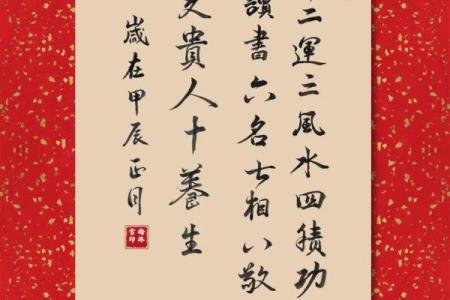 二運三風水四積功
讀書六名七相八敬
交貴人十養生
歲在甲辰正月